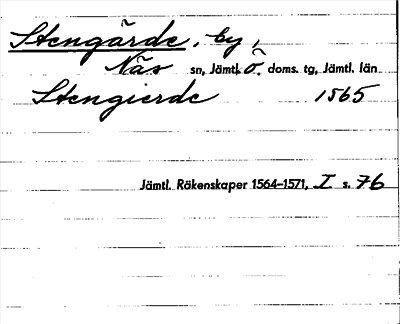 Stengärde, by,
Näs sn, Jämtl. Ö. doms. tg, Jämtl. län
Stengierde 1565
Jämtl. Räkenskaper 1564–1571, I s. 76